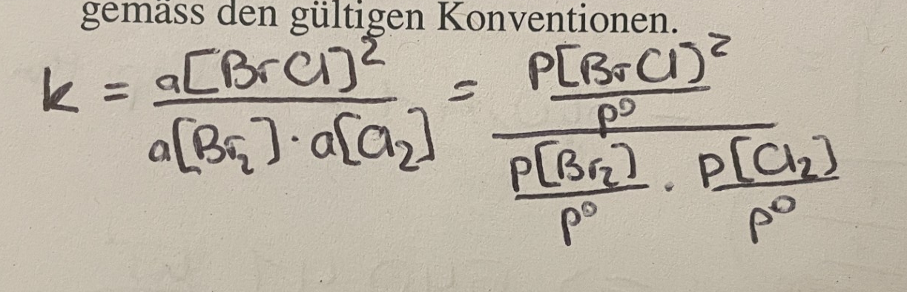 gemäss den gültigen Konventionen.
k = a[BrCl]² / a[Br₂]·a[Cl₂] = p[BrCl]²/p⁰ / p[Br₂]/p⁰ · p[Cl₂]/p⁰